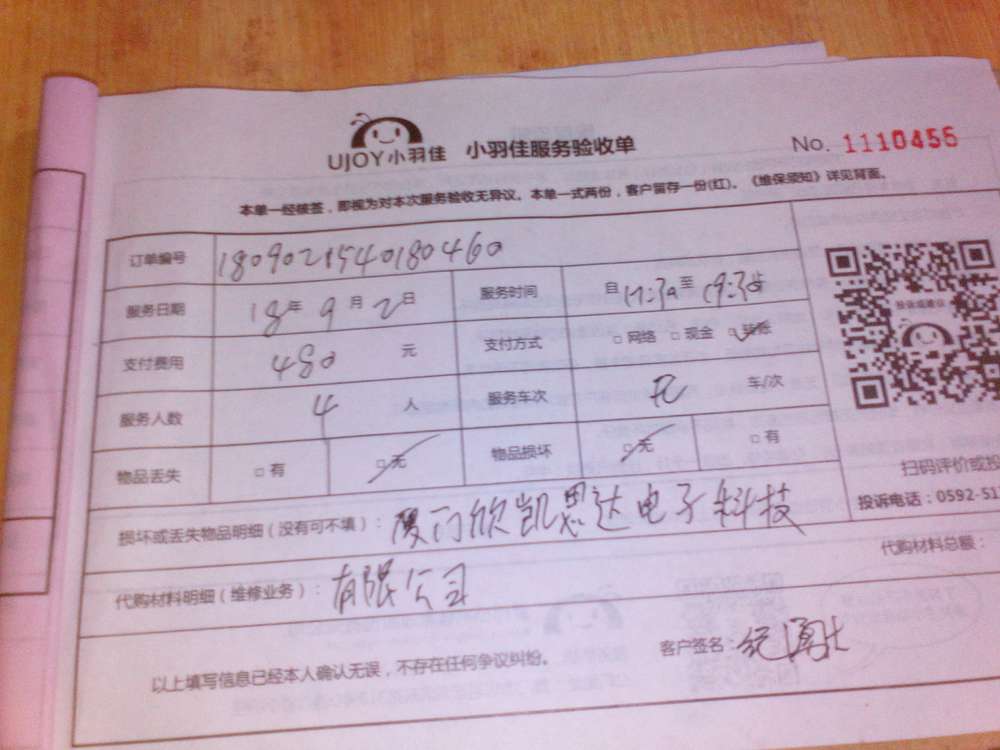 UJOY小羽佳 小羽佳服务验收单 No. 1110455
本单一经被签，即视为对本次服务验收无异议。本单一式两份，客户留存一份(红)。《维保须知》详见背面。
订单编号 1809021540180460
服务日期 18年 9月 2日 服务时间 自17:30至19:30止
支付费用 480 元 支付方式 □网络 □现金 □转账
服务人数 4 人 服务车次 车/次
物品丢失 □有 □无 物品损坏 □无 □有
投诉或建议
扫码评价或投
投诉电话：0592-51
损坏或丢失物品明细（没有可不填）：厦门欣凯思达电子科技
代购材料总额：
代购材料明细（维修业务）：有限公司
以上填写信息已经本人确认无误，不存在任何争议纠纷。 客户签名：